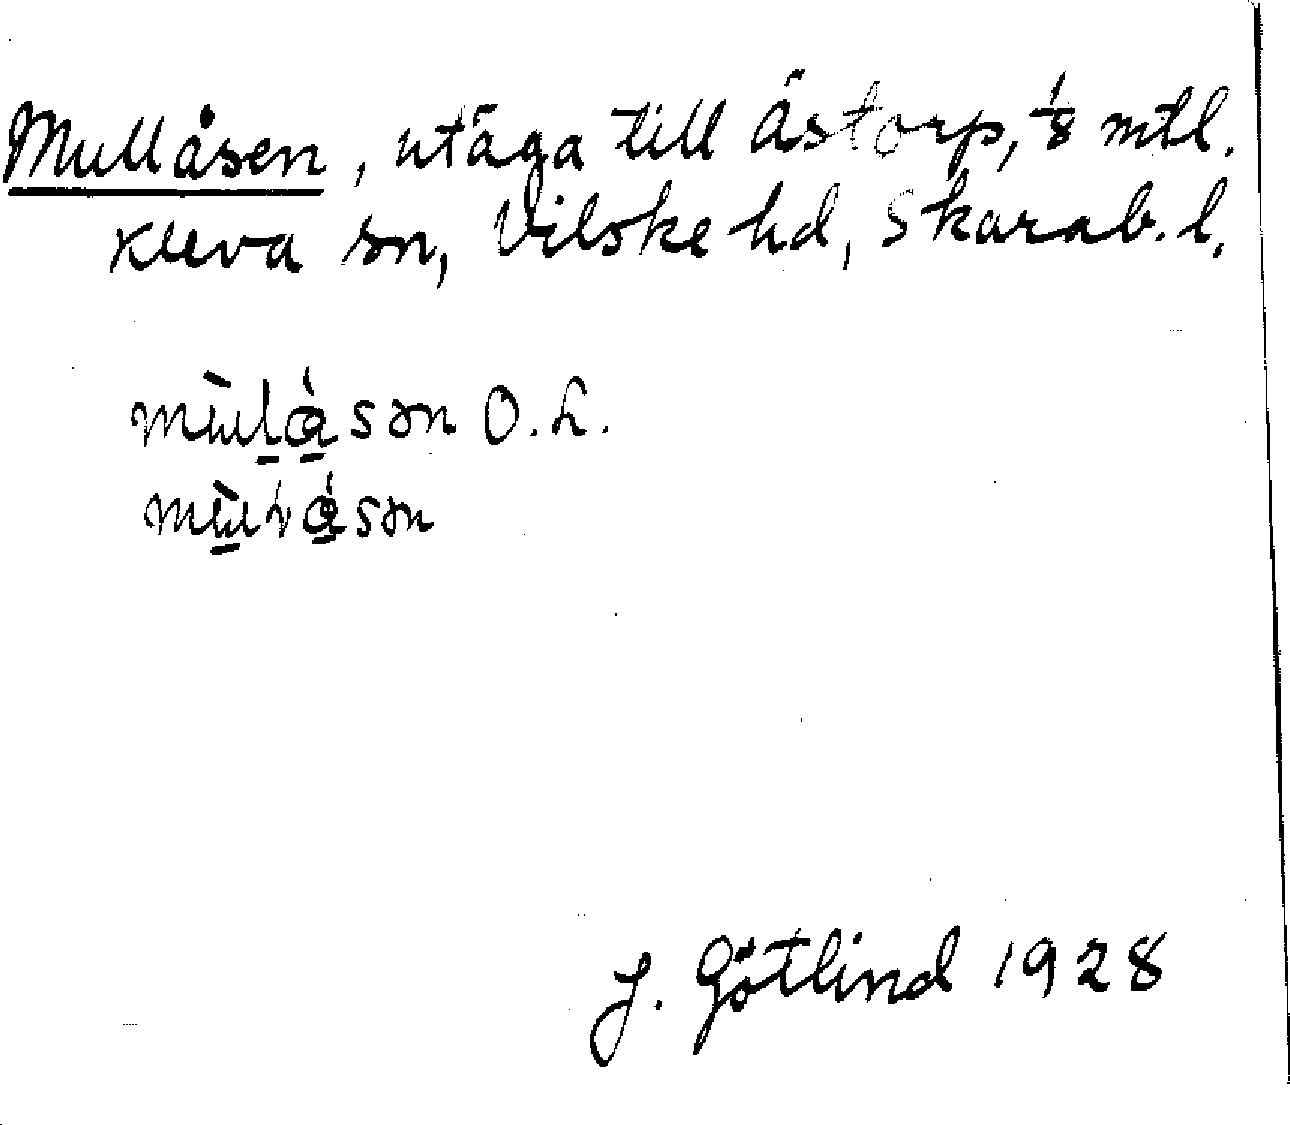 Mullåsen, utäga till Ästorp, 1/8 mtl.
Kleva sn, Vilske hd, Skarab. l.
mùlå̀sən O.L.
sən
J. Götlind 1928